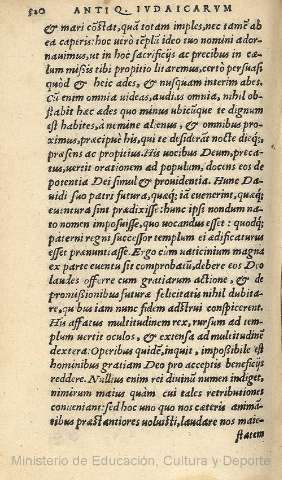 520 ANTIQ. IVDAICARVM
& mari cõstat, quã totam imples, nec tamẽ ab
ea caperis: hoc verò tẽplũ ideo tuo nomini ador-
nauimus, ut in hoc sacrificijs ac precibus in cæ-
lum missis tibi propitio litaremus, certò persuasi
quòd & heic ades, & nusquam interim abes.
Cũ enim omnia uideas, audias omnia, nihil ob-
stabit hæc ædes quo minus ubicũque te dignum
est habites, à nemine alienus, & omnibus pro-
ximus, præcipuè his, qui te desiderãt nocte dieq;,
præsens ac propitius. His uocibus Deum, preca-
tus, uertit orationem ad populum, docens eos de
potentia Dei simul & prouidentia. Hunc Da-
uidi suo patri futura, quæq; iã euenerint, quæq;
euentura sint prædixisse: hunc ipsi nondum na-
to nomen imposuisse, quo uocandus esset: quodq;
paterni regni successor templum ei ædificaturus
esset prænuntiasse. Ergo cùm uaticinium magna
ex parte euentu sit comprobatũ, debere eos Deo
laudes offerre cum gratiarum actione, & de
promissionibus futuræ felicitatis nihil dubita-
re, quibus iam nunc fidem adstrui conspicerent.
His affatus multitudinem rex, rursum ad tem-
plum uertit oculos, & extensa ad multitudinẽ
dextera: Operibus quidẽ, inquit, impoßibile est
hominibus gratiam Deo pro acceptis beneficijs
reddere. Nullius enim rei diuinũ numen indiget,
nimirum maius quàm cui tales retributiones
conueniant: sed hoc uno quo nos cæteris animã-
tibus præstantiores uoluisti, laudare nos maie-
statem
Ministerio de Educación, Cultura y Deporte